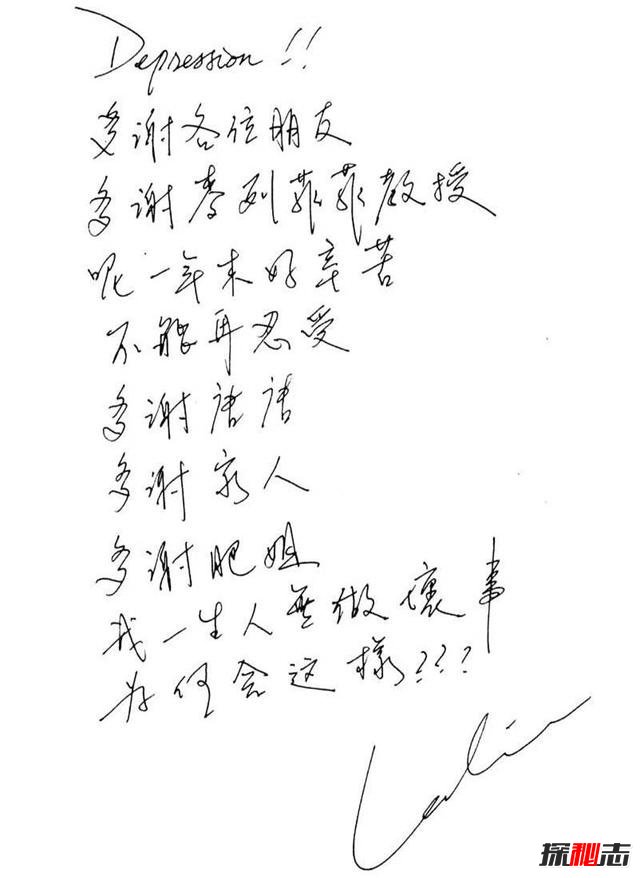 Depression!!
多谢各位朋友
多谢麦列菲菲教授
呢一年来好辛苦
不能再忍受
多谢唐唐
多谢家人
多谢肥姐
我一生人無做壞事
为何会这樣???
Leslie
探秘志